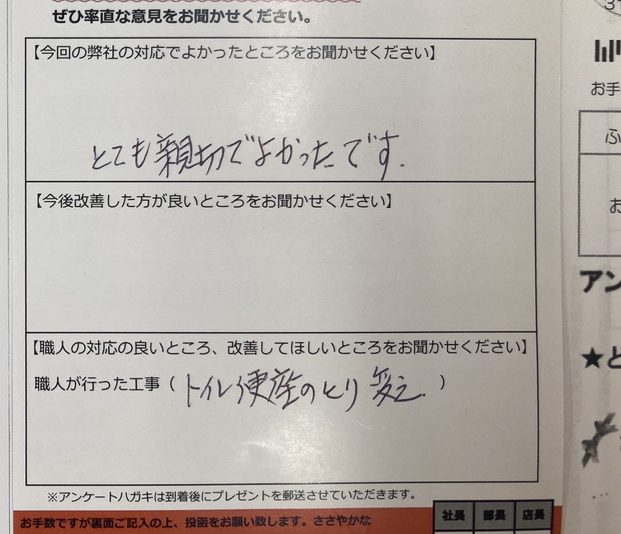 ぜひ率直な意見をお聞かせください。
【今回の弊社の対応でよかったところをお聞かせください】
とても親切でよかったです.
【今後改善した方が良いところをお聞かせください】
【職人の対応の良いところ、改善してほしいところをお聞かせください】
職人が行った工事（トイレ便座のとり変え）
※アンケートハガキは到着後にプレゼントを郵送させていただきます。
お手数ですが裏面ご記入の上、投函をお願い致します。ささやかな
社長 部長 店長
お手
ふ
お
アン
★ど